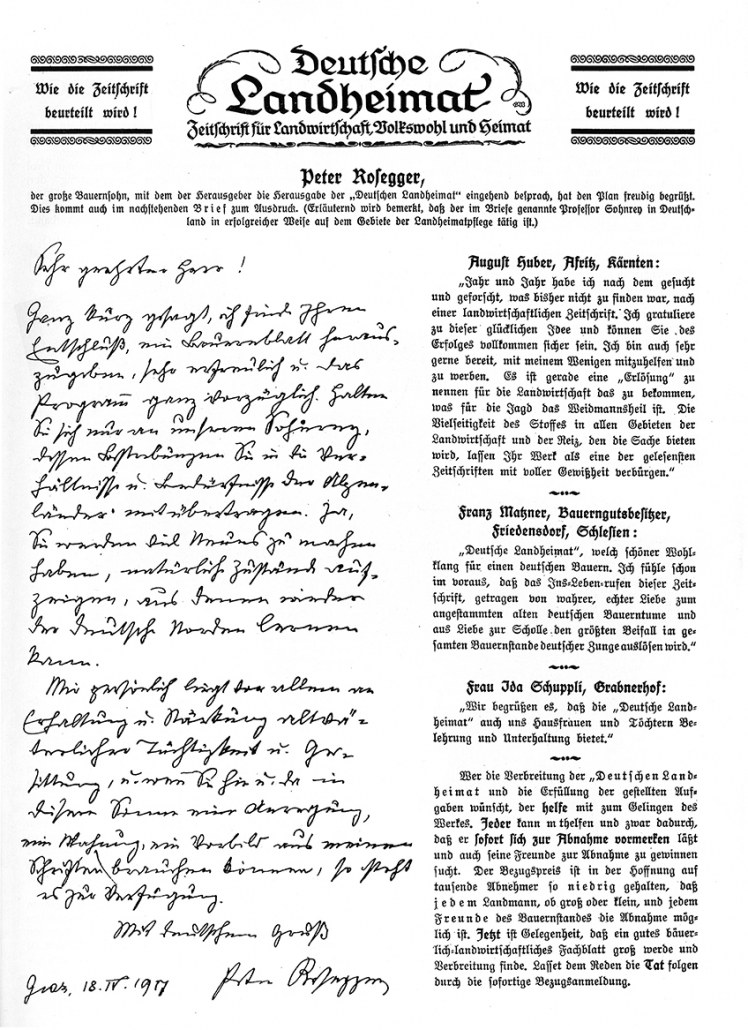 Wie die Zeitschrift
beurteilt wird!
Deutsche
Landheimat
Zeitschrift für Landwirtschaft, Volkswohl und Heimat
Wie die Zeitschrift
beurteilt wird!
Peter Rosegger,
der große Bauernsohn, mit dem der Herausgeber die Herausgabe der „Deutschen Landheimat“ eingehend besprach, hat den Plan freudig begrüßt.
Dies kommt auch im nachstehenden Brief zum Ausdruck. (Erläuternd wird bemerkt, daß der im Briefe genannte Professor Sohnrey in Deutsch-
land in erfolgreicher Weise auf dem Gebiete der Landheimatpflege tätig ist.)
Sehr geehrter Herr!
Ganz kurz gesagt, ich finde Ihren
Entschluß, ein Bauernblatt heraus-
zugeben, sehr erfreulich u. das
Programm ganz vorzüglich. Halten
Sie sich nur an unseren Sohnrey,
dessen Bestrebungen Sie in die Ver-
hältnisse u. Bedürfnisse der Alpen-
länder mit übertragen. Ja,
Sie werden viel Neues zu machen
haben, natürlich Zustände auf-
zeigen, aus denen wieder
der deutsche Norden lernen
kann.
Mir persönlich liegt vor allem an
Erhaltung u. Stärkung altvä-
terlicher Tüchtigkeit u. Ge-
sittung, u. wenn Sie hie u. da in
diesem Sinne eine Anregung,
eine Mahnung, ein Vorbild aus meinen
Schriften brauchen können, so steht
es zur Verfügung.
Mit deutschem Gruß
Graz, 18. IV. 1917 Peter Rosegger
August Huber, Afritz, Kärnten:
„Jahr und Jahr habe ich nach dem gesucht
und geforscht, was bisher nicht zu finden war, nach
einer landwirtschaftlichen Zeitschrift. Ich gratuliere
zu dieser glücklichen Idee und können Sie des
Erfolges vollkommen sicher sein. Ich bin auch sehr
gerne bereit, mit meinem Wenigen mitzuhelfen und
zu werben. Es ist gerade eine „Erlösung“ zu
nennen für die Landwirtschaft das zu bekommen,
was für die Jagd das Weidmannsheil ist. Die
Vielseitigkeit des Stoffes in allen Gebieten der
Landwirtschaft und der Reiz, den die Sache bieten
wird, lassen Ihr Werk als eine der gelesensten
Zeitschriften mit voller Gewißheit verbürgen.“
Franz Matzner, Bauerngutsbesitzer,
Friedensdorf, Schlesien:
„Deutsche Landheimat“, welch schöner Wohl-
klang für einen deutschen Bauern. Ich fühle schon
im voraus, daß das Ins-Leben-rufen dieser Zeit-
schrift, getragen von wahrer, echter Liebe zum
angestammten alten deutschen Bauerntume und
aus Liebe zur Scholle den größten Beifall im ge-
samten Bauernstande deutscher Zunge auslösen wird.“
Frau Ida Schuppli, Grabnerhof:
„Wir begrüßen es, daß die „Deutsche Land-
heimat“ auch uns Hausfrauen und Töchtern Be-
lehrung und Unterhaltung bietet.“
Wer die Verbreitung der „Deutschen Land-
heimat und die Erfüllung der gestellten Auf-
gaben wünscht, der helfe mit zum Gelingen des
Werkes. Jeder kann m thelfen und zwar dadurch,
daß er sofort sich zur Abnahme vormerken läßt
und auch seine Freunde zur Abnahme zu gewinnen
sucht. Der Bezugspreis ist in der Hoffnung auf
tausende Abnehmer so niedrig gehalten, daß
jedem Landmann, ob groß oder klein, und jedem
Freunde des Bauernstandes die Abnahme mög-
lich ist. Jetzt ist Gelegenheit, daß ein gutes bäuer-
lich-landwirtschaftliches Fachblatt groß werde und
Verbreitung finde. Lasset dem Reden die Tat folgen
durch die sofortige Bezugsanmeldung.